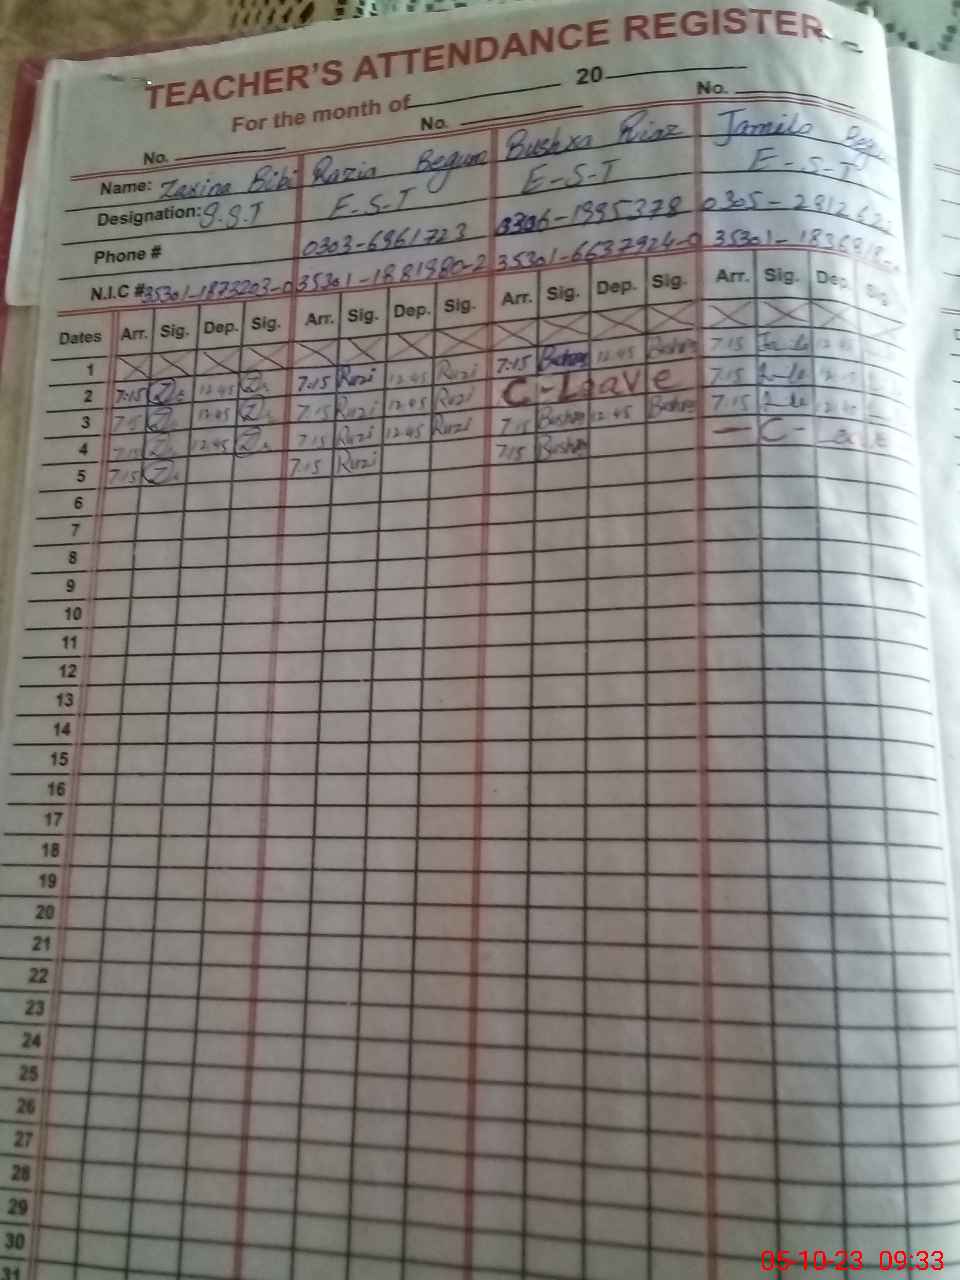 TEACHER'S ATTENDANCE REGISTER
For the month of 20
No. No. No.
Name: Zarina Bibi Razia Begum Bushra Riaz Jamila Begum
Designation: S.S.T E-S-T E-S-T E-S-T
Phone # 0303-6961723 0306-1995378
N.I.C # 35301-1873203-0 35301-1881980-2 35301-6637924-0
Dates Arr. Sig. Dep. Sig. Arr. Sig. Dep. Sig. Arr. Sig. Dep. Sig. Arr. Sig. Dep. Sig.
1
2 7:15 12:45 7:15 Razi 12:45 Razi 7:15 Bushra 12:45 Bushra 7:15
3 7:15 12:45 7:15 Razi 12:45 Razi C-Leave 7:15
4 7:15 12:45 7:15 Razi 12:45 Razi 7:15 Bushra 12:45 Bushra 7:15
5 7:15 7:15 Razi 7:15 Bushra C-Leave
6
7
8
9
10
11
12
13
14
15
16
17
18
19
20
21
22
23
24
25
26
27
28
29
30
31
05-10-23 09:33